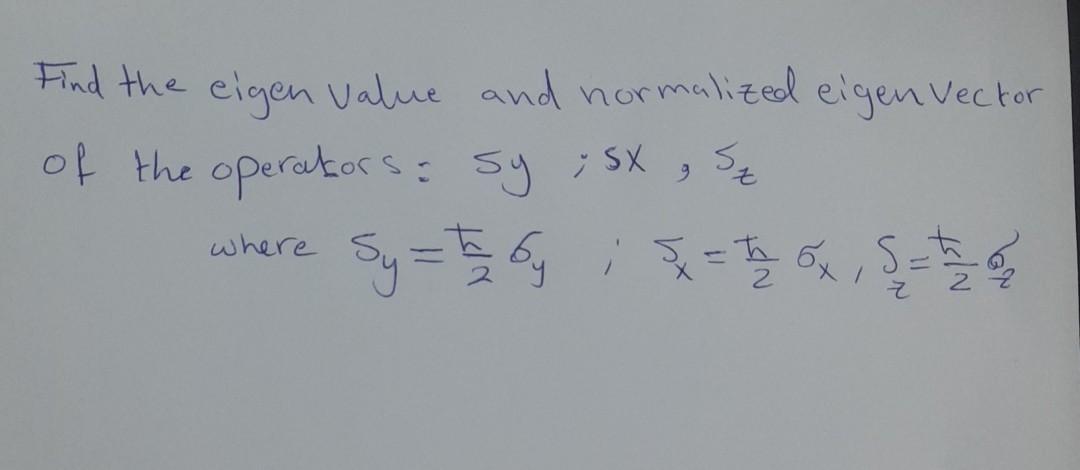 Find the eigen value and normalized eigen vector
of the operators: Sy ; SX , Sz
where Sy = ħ/2 σy ; Sx = ħ/2 σx , Sz = ħ/2 σz